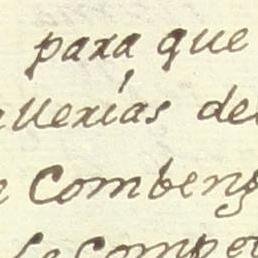 para que
allerías del
e Combeng
se compet